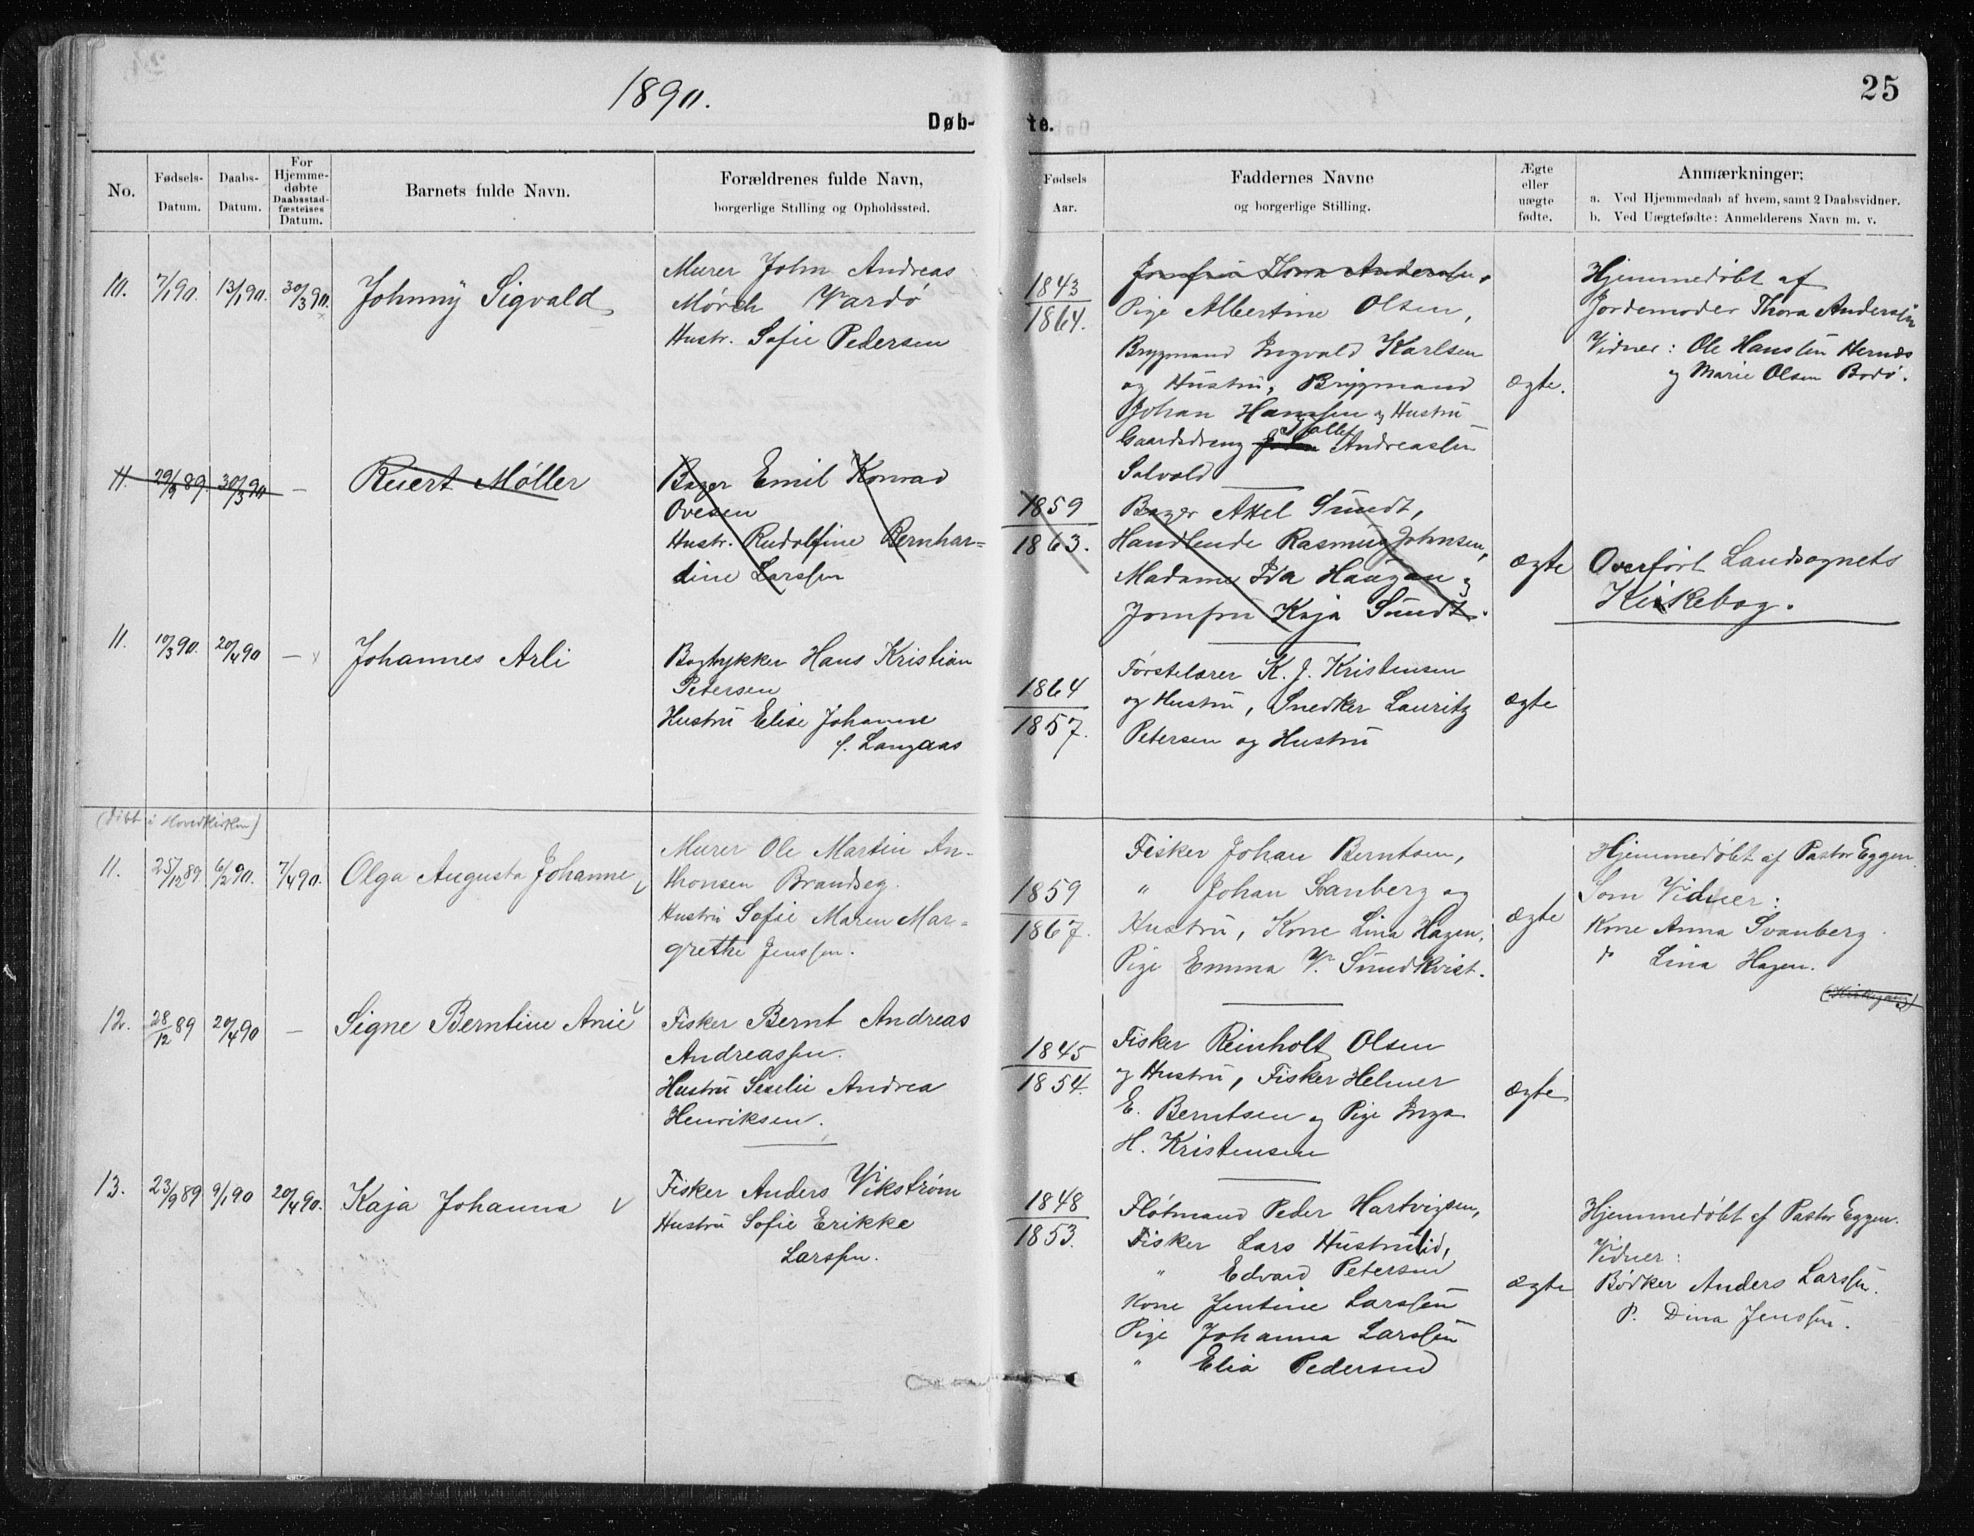 1890.
25
Døb-
te.
No.
Fødsels-
Datum.
Daabs-
Datum.
For
Hjemme-
døbte
Daabsstad-
fæstelses
Datum.
Barnets fulde Navn.
Forældrenes fulde Navn,
borgerlige Stilling og Opholdssted.
Fødsels
Aar.
Faddernes Navne
og borgerlige Stilling.
Ægte
eller
uægte
fødte.
Anmærkninger:
a. Ved Hjemmedaab af hvem, samt 2 Daabsvidner.
b. Ved Uægtefødte: Anmelderens Navn m. v.
10. 7/1 90. 13/1 90. 30/3 90.
Johnny Sigvald
Murer John Andreas
Mørch Vardö
Hustr. Sofie Pedersen
1843
1864.
Jomfru Thora Andersen,
Pige Albertine Olsen,
Brygmand Ingvald Karlsen
og Hustru, Brygmand
Johan Hanssen og Hustru
Gaardsdreng Andreassen
Solvold
ægte.
Hjemmedøbt af
Jordemoder Thora Andersen
Vidner: Ole Hansen Hernes
og Marie Olsen Bodø.
11. 29/9 89. 30/3 90 —
Reiert Møller
Bager Emil Konrad
Ovesen
Hustr. Rudolfine Bernhar=
dine Larssen
1859
1863.
Bager Axel Sundt,
Handlende Rasmus Johnsen,
Madame Ida Haugan og
Jomfru Kaja Sundt.
ægte
Overført Landsognets
Kirkebog.
11. 10/3 90. 20/4 90 —
Johannes Arli
Bogtrykker Hans Kristian
Petersen
Hustru Elise Johanne
f. Langaas
1864
1857.
Førstelærer K. J. Kristensen
og Hustru, Snedker Lauritz
Petersen og Hustru
ægte
(døbt i Hovedkirken)
11. 25/12 89 6/2 90. 7/4 90.
Olga Augusta Johanne
Murer Ole Martin An-
thonsen Brandseg.
Hustru Sofie Maren Mar=
grethe Jenssen.
1859
1867.
Fisker Johan Berntsen,
" Johan Svanberg og
Hustru, Kone Lina Hagen,
Pige Emma V. Sundkvist.
ægte
Hjemmedøbt af Pastor Eggen.
Som Vidner:
Kone Anna Svanberg
" Lina Hagen.
12. 28/12 89 20/4 90 —
Signe Berntine Anie
Fisker Bernt Andreas
Andreassen.
Hustru Seselie Andrea
Henriksen.
1845
1854.
Fisker Reinholt Olsen
og Hustru, Fisker Helmer
E. Berntsen og Pige Inga
H. Kristensen
ægte
13. 23/9 89 9/1 90 20/4 90.
Kaja Johanna
Fisker Anders Vikstrøm
Hustru Sofie Erikke
Larssen.
1848
1853.
Fløtmand Peder Hartvigsen,
Fisker Lars Hustrulid,
" Edvard Petersen
Kone Jentine Larssen
Pige Johanna Larssen
" Elia Pedersen
ægte
Hjemmedøbt af Pastor Eggen.
Vidner:
Bødker Anders Larssen.
P. Dina Jenssen.